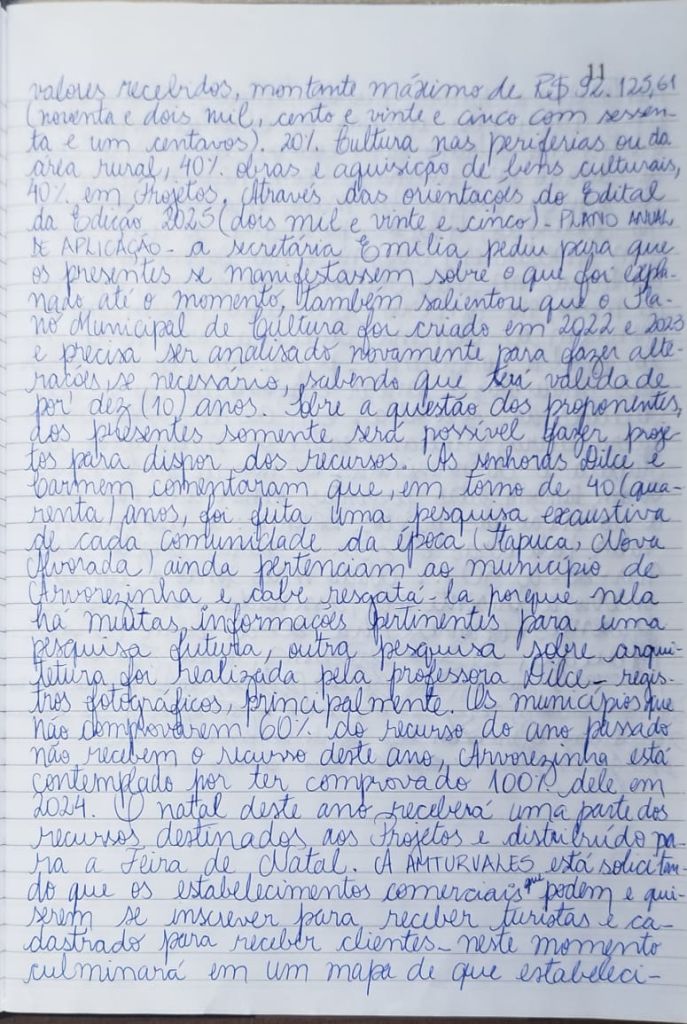 11
valores recebidos, montante máximo de R$ 92.125,61
(noventa e dois mil, cento e vinte e cinco com sessen-
ta e um centavos). 20% Cultura nas periferias ou da
área rural, 40% obras e aquisição de bens culturais,
40% em Projetos, através das orientações do Edital
da Edição 2025 (dois mil e vinte e cinco) - PLANO ANUAL
DE APLICAÇÃO - a secretária Emilia pediu para que
os presentes se manifestassem sobre o que foi expla-
nado até o momento, também salientou que o Pla-
no Municipal de Cultura foi criado em 2022 e 2023
e precisa ser analisado novamente para fazer alte-
rações, se necessário, sabendo que terá validade
por dez (10) anos. Sobre a questão dos proponentes,
dos presentes somente será possível fazer proje-
tos para dispor dos recursos. As senhoras Dilce e
Carmem comentaram que, em torno de 40 (qua-
renta) anos, foi feita uma pesquisa exaustiva
de cada comunidade da época (Itapuca, Nova
Alvorada) ainda pertenciam ao município de
Arvorezinha e cabe resgatá-la porque nela
há muitas informações pertinentes para uma
pesquisa futura, outra pesquisa sobre arqui-
tetura foi realizada pela professora Dilce - regis-
tros fotográficos, principalmente. Os municípios que
não comprovarem 60% do recurso do ano passado
não recebem o recurso deste ano, Arvorezinha está
contemplado por ter comprovado 100% dele em
2024. O natal deste ano receberá uma parte dos
recursos destinados aos Projetos e distribuído pa-
ra a Feira de Natal. A AMTURVALES está solicitan-
do que os estabelecimentos comerciais que podem e qui-
serem se inscrever para receber turistas e ca-
dastrado para receber clientes - neste momento
culminará em um mapa de que estabeleci-